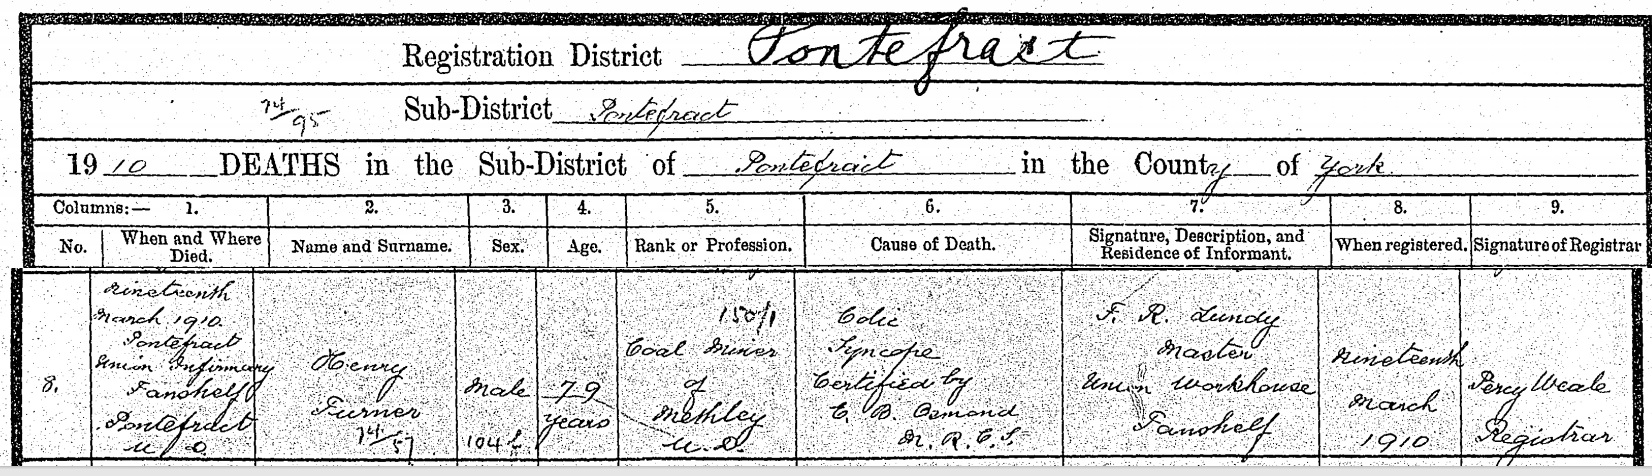 Registration District Pontefract
74/95 Sub-District Pontefract
1910 DEATHS in the Sub-District of Pontefract in the County of York
Columns:— 1. 2. 3. 4. 5. 6. 7. 8. 9.
No. When and Where Died. Name and Surname. Sex. Age. Rank or Profession. Cause of Death. Signature, Description, and Residence of Informant. When registered. Signature of Registrar
8.
Nineteenth
March 1910.
Pontefract
Union Infirmary
Tanshelf
Pontefract
U D
Henry
Turner
74/57
Male
104
79
years
150/1
Coal Miner
of
Methley
U.D.
Colic
Syncope
Certified by
C. B. Osmond
M. R. C. S.
F. R. Lundy
Master
Union Workhouse
Tanshelf
Nineteenth
March
1910
Percy Weale
Registrar